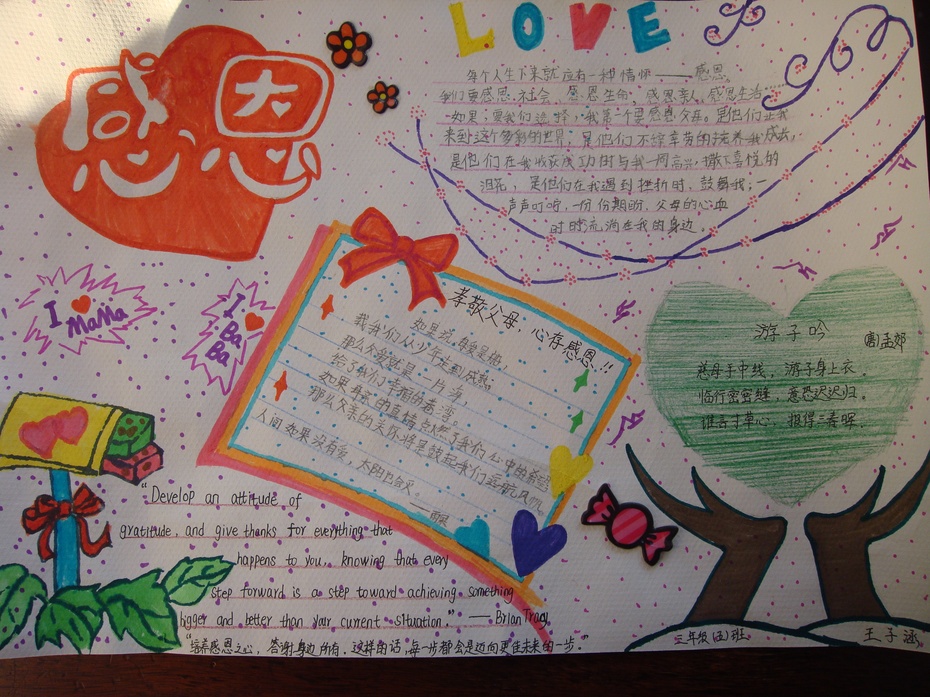 感恩
LOVE
每个人生下来就应有一种情怀——感恩。
我们要感恩社会、感恩生命、感恩亲人、感恩生活……
如果要我们选择，我第一个要感恩父母。是他们让我
来到这个多彩的世界，是他们不辞辛劳的培养我成长，
是他们在我收获成功时与我一同高兴，撒下喜悦的
泪花，是他们在我遇到挫折时，鼓舞我，一
声声叮咛，一份份期盼，父母的心血
时时流淌在我的身边
I MaMa
I BaBa
孝敬父母，心存感恩!!
如果说，母爱是船，
载我们从少年走到成熟；
那么父爱就是一片海，
给了我们幸福的港湾。
如果母亲的真情点燃了我们心中的希望
那么父亲的关怀将是鼓起我们远航风帆。
人间如果没有爱，太阳也会灭。
游子吟
孟郊
慈母手中线，游子身上衣。
临行密密缝，意恐迟迟归。
谁言寸草心，报得三春晖。
"Develop an attitude of
gratitude, and give thanks for everything that
happens to you, knowing that every
step forward is a step toward achieving something
bigger and better than your current situation." —— Brian Tracy
"培养感恩之心，答谢身边所有，这样的话，每一步都会是迈向更佳未来的一步。"
三年级(五)班
王子涵